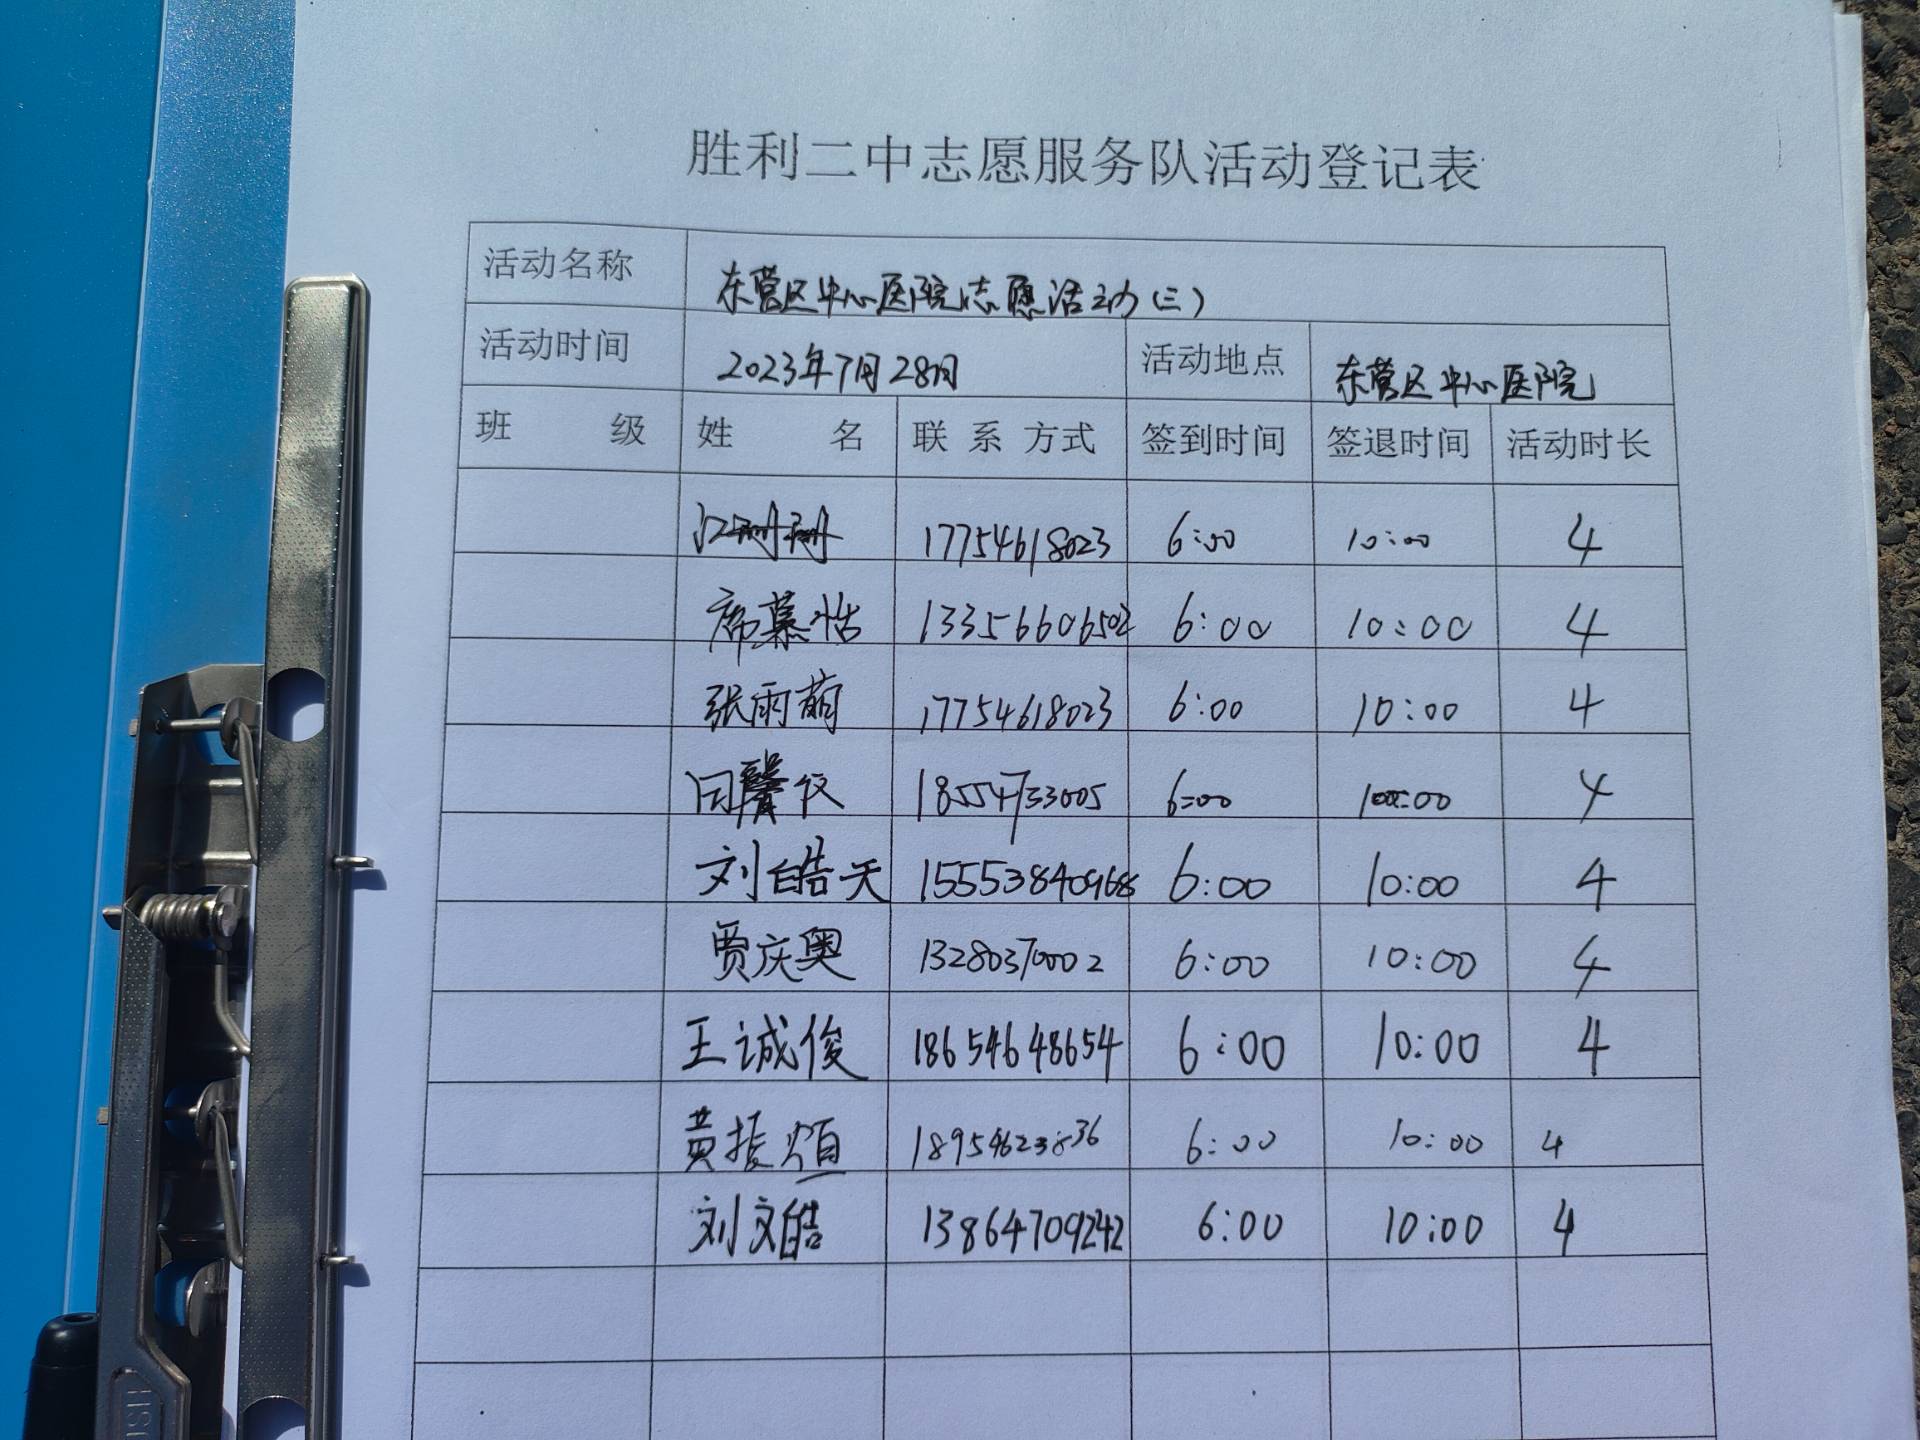 胜利二中志愿服务队活动登记表
活动名称 东营区中心医院志愿活动(三)
活动时间 2023年7月28日 活动地点 东营区中心医院
班 级 姓 名 联 系 方式 签到时间 签退时间 活动时长
江珊珊 17754618023 6:00 10:00 4
席慕恬 13356606502 6:00 10:00 4
张雨萌 17754618023 6:00 10:00 4
闫馨仪 18554733005 6:00 10:00 4
刘皓天 15553840968 6:00 10:00 4
贾庆奥 13280370002 6:00 10:00 4
王诚俊 18654648654 6:00 10:00 4
黄振 18954623836 6:00 10:00 4
刘文皓 13864709242 6:00 10:00 4